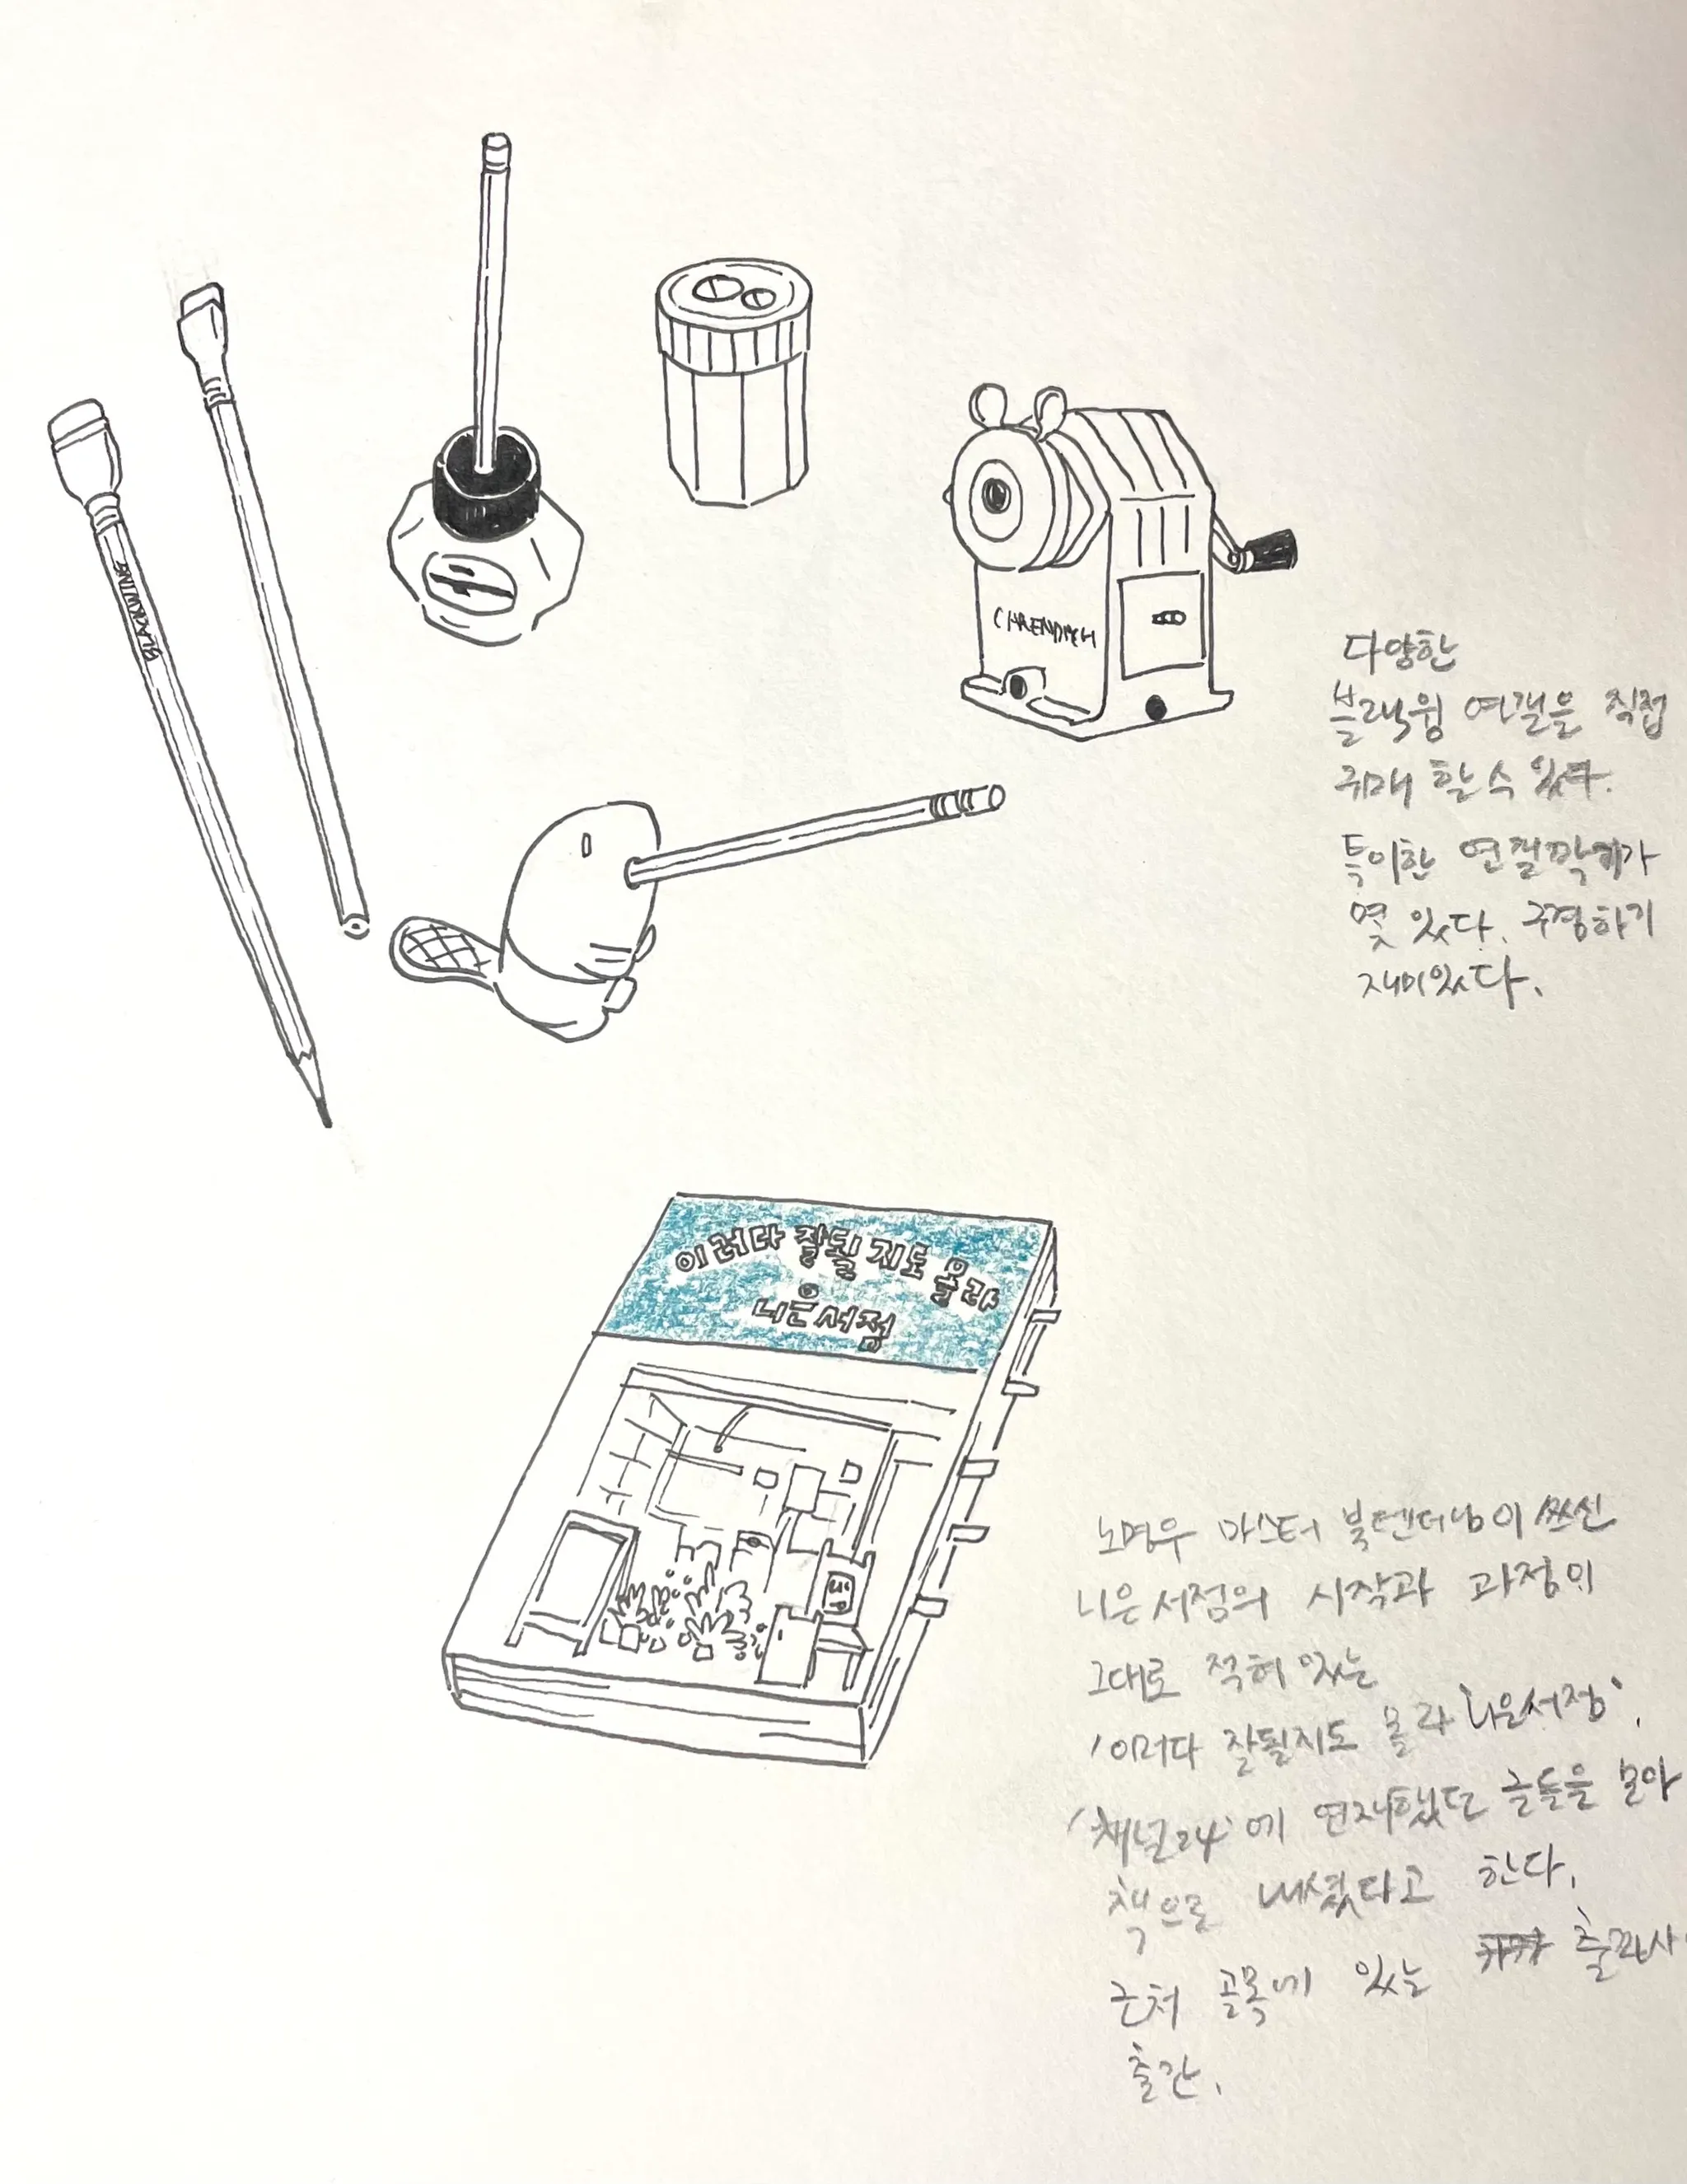 BLACKWING
다양한
블랙윙 연필을 직접
구매 할 수 있다.
특이한 연필깎이가
몇 있다. 구경하기
재미있다.
이러다 잘될 지도 몰라
니은서점
노명우 마스터 북텐더님이 쓰신
니은서점의 시작과 과정이
그대로 적혀 있는
'이러다 잘될지도 몰라 니은서점'.
'채널24'에 연재했던 글들을 모아
책으로 내셨다고 한다.
근처 골목에 있는 출판사
출간.